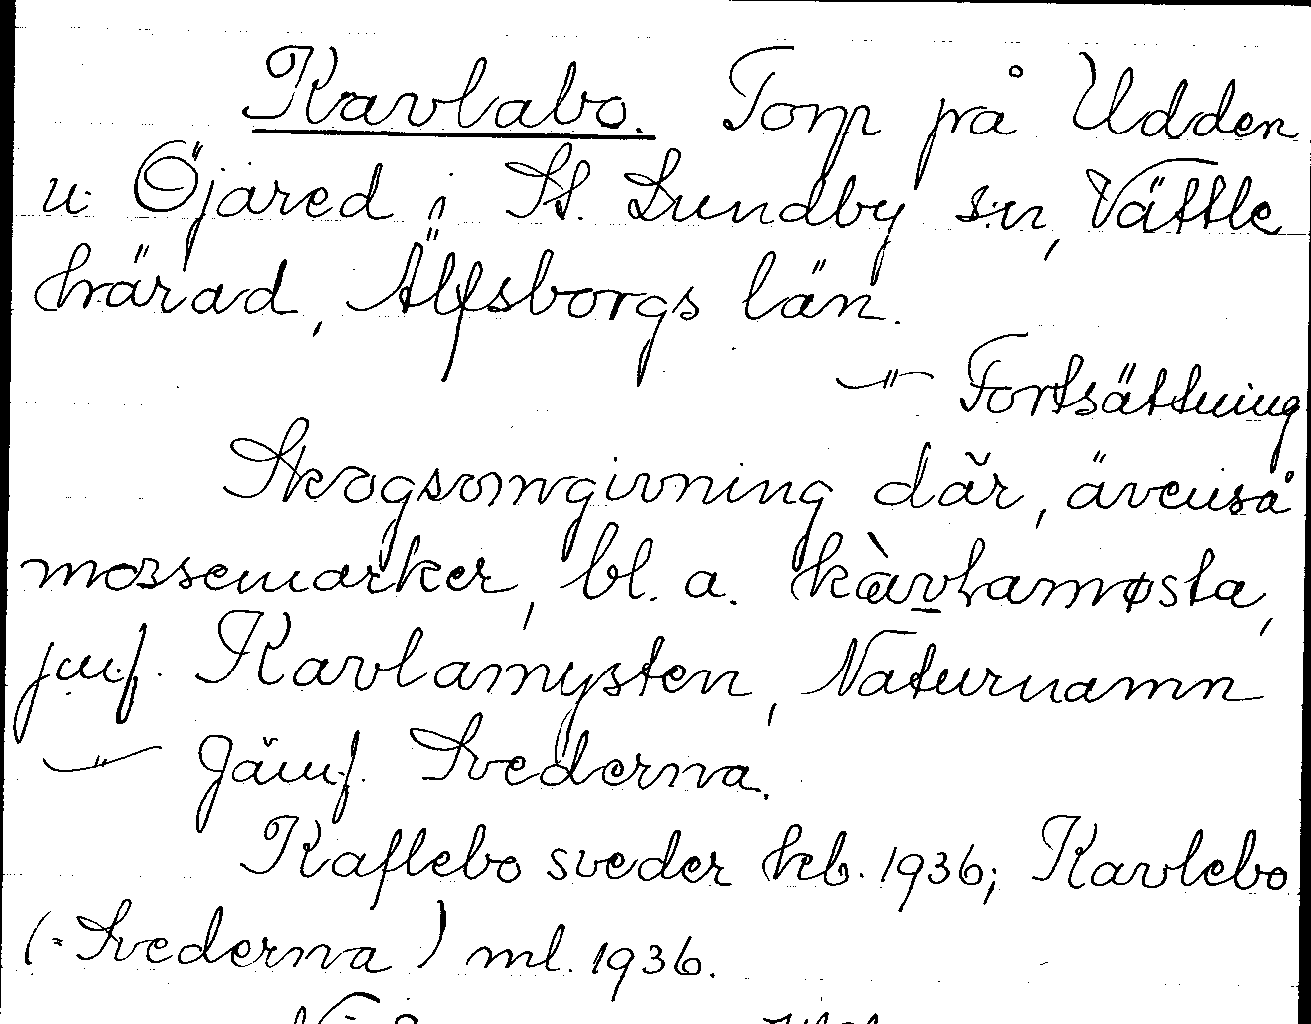 Kavlabo. Torp på Udden
u. Öjared i St. Lundby sn, Vättle
härad, Älfsborgs län.
—〃— Fortsättning
Skogsomgivning där, ävenså
mossemarker, bl. a. kàvlamøsta,
jmf. Kavlamysten, Naturnamn
—〃— Jämf. Svederna.
Kaflebo sveder hkb. 1936; Kavlebo
(= Svederna) ml. 1936.